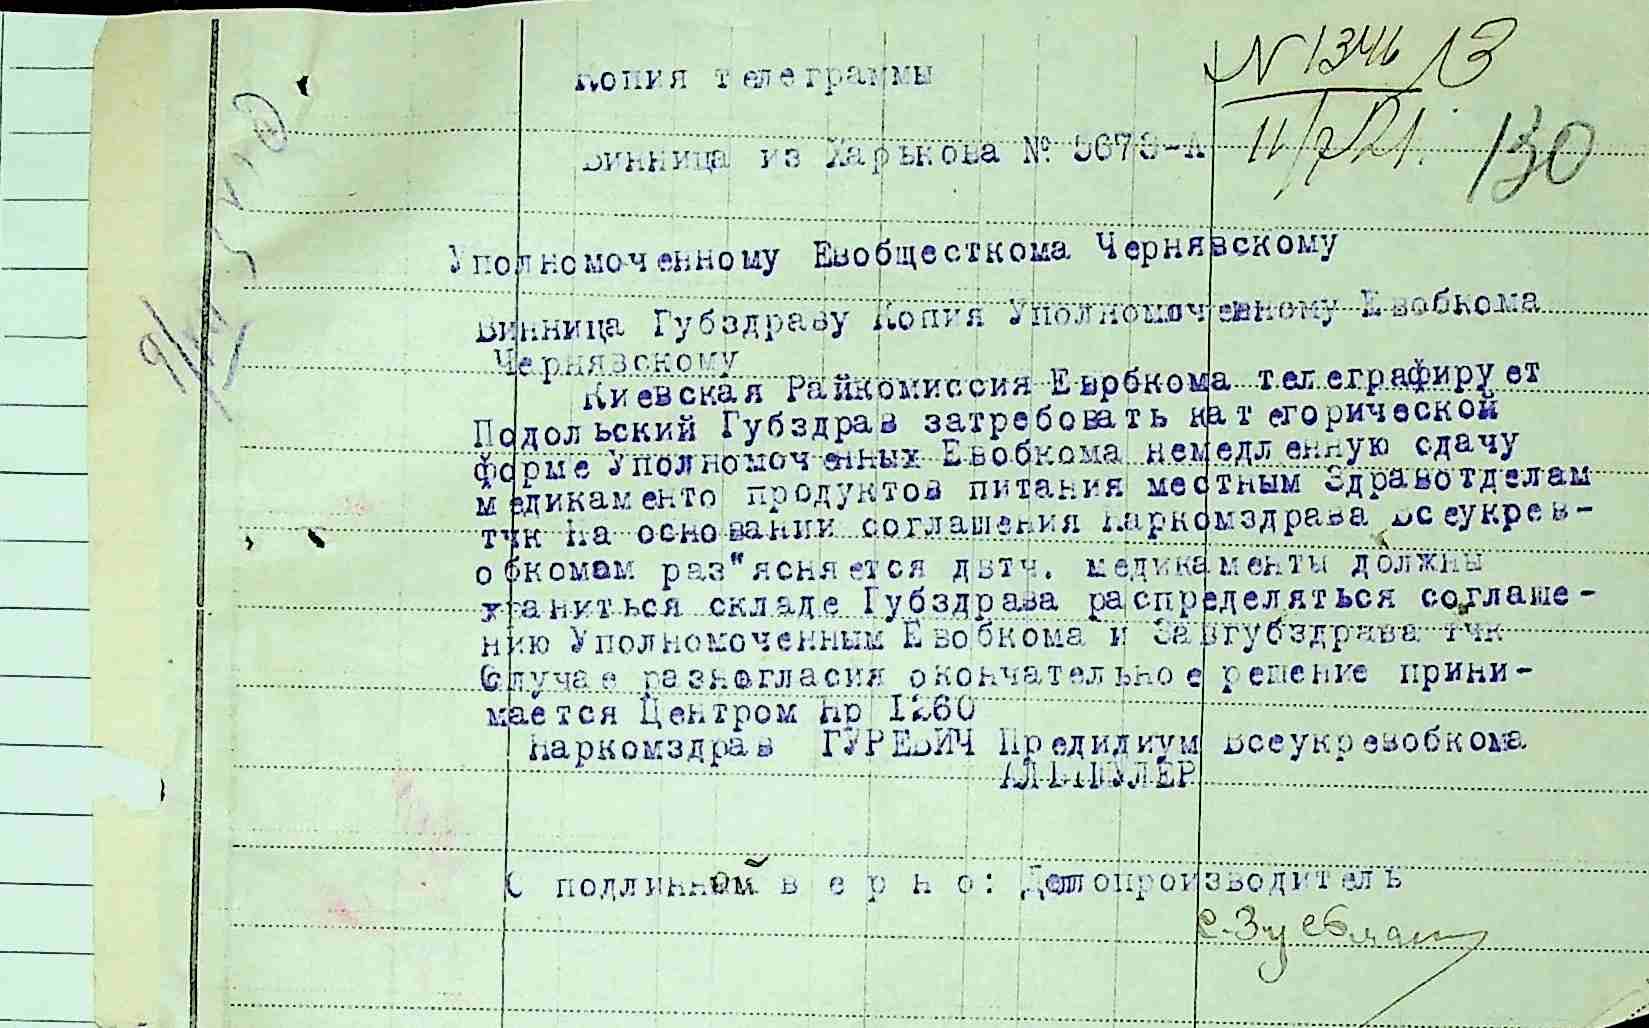 № 1346 13
130
Копия телеграммы
Винница из Харькова № 5673-А
Уполномоченному Евобщесткома Чернявскому
Винница Губздраву Копия Уполномоченному Евобкома
Чернявскому
Киевская Райкомиссия Евобкома телеграфирует
Подольский Губздрав затребовать категорической
форме Уполномоченных Евобкома немедленную сдачу
медикаменто продуктов питания местным Здравотделам
тчк На основании соглашения Наркомздрава Всеукрев-
обкомом раз"ясняется двтч. медикаменты должны
храниться складе Губздрава распределяться соглаше-
нию Уполномоченным Евобкома и Завгубздрава тчк
Случае разногласия окончательное решение прини-
мается Центром Нр 1260
Наркомздрав ГУРЕВИЧ Предидиум Всеукревобкома
АЛЬТШУЛЕР
С подлинным в е р н о: Делопроизводитель